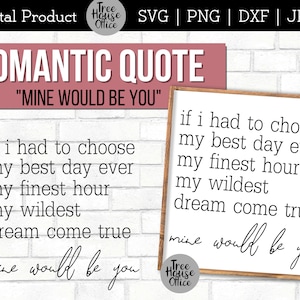 tal Product
Tree House Office
SVG | PNG | DXF | J
OMANTIC QUOTE
"MINE WOULD BE YOU"
i had to choose
my best day ever
my finest hour
my wildest
dream come true
mine would be you
if i had to cho
my best day e
my finest hour
my wildest
dream come tru
mine would be y
Tree House Office
Tree House Office